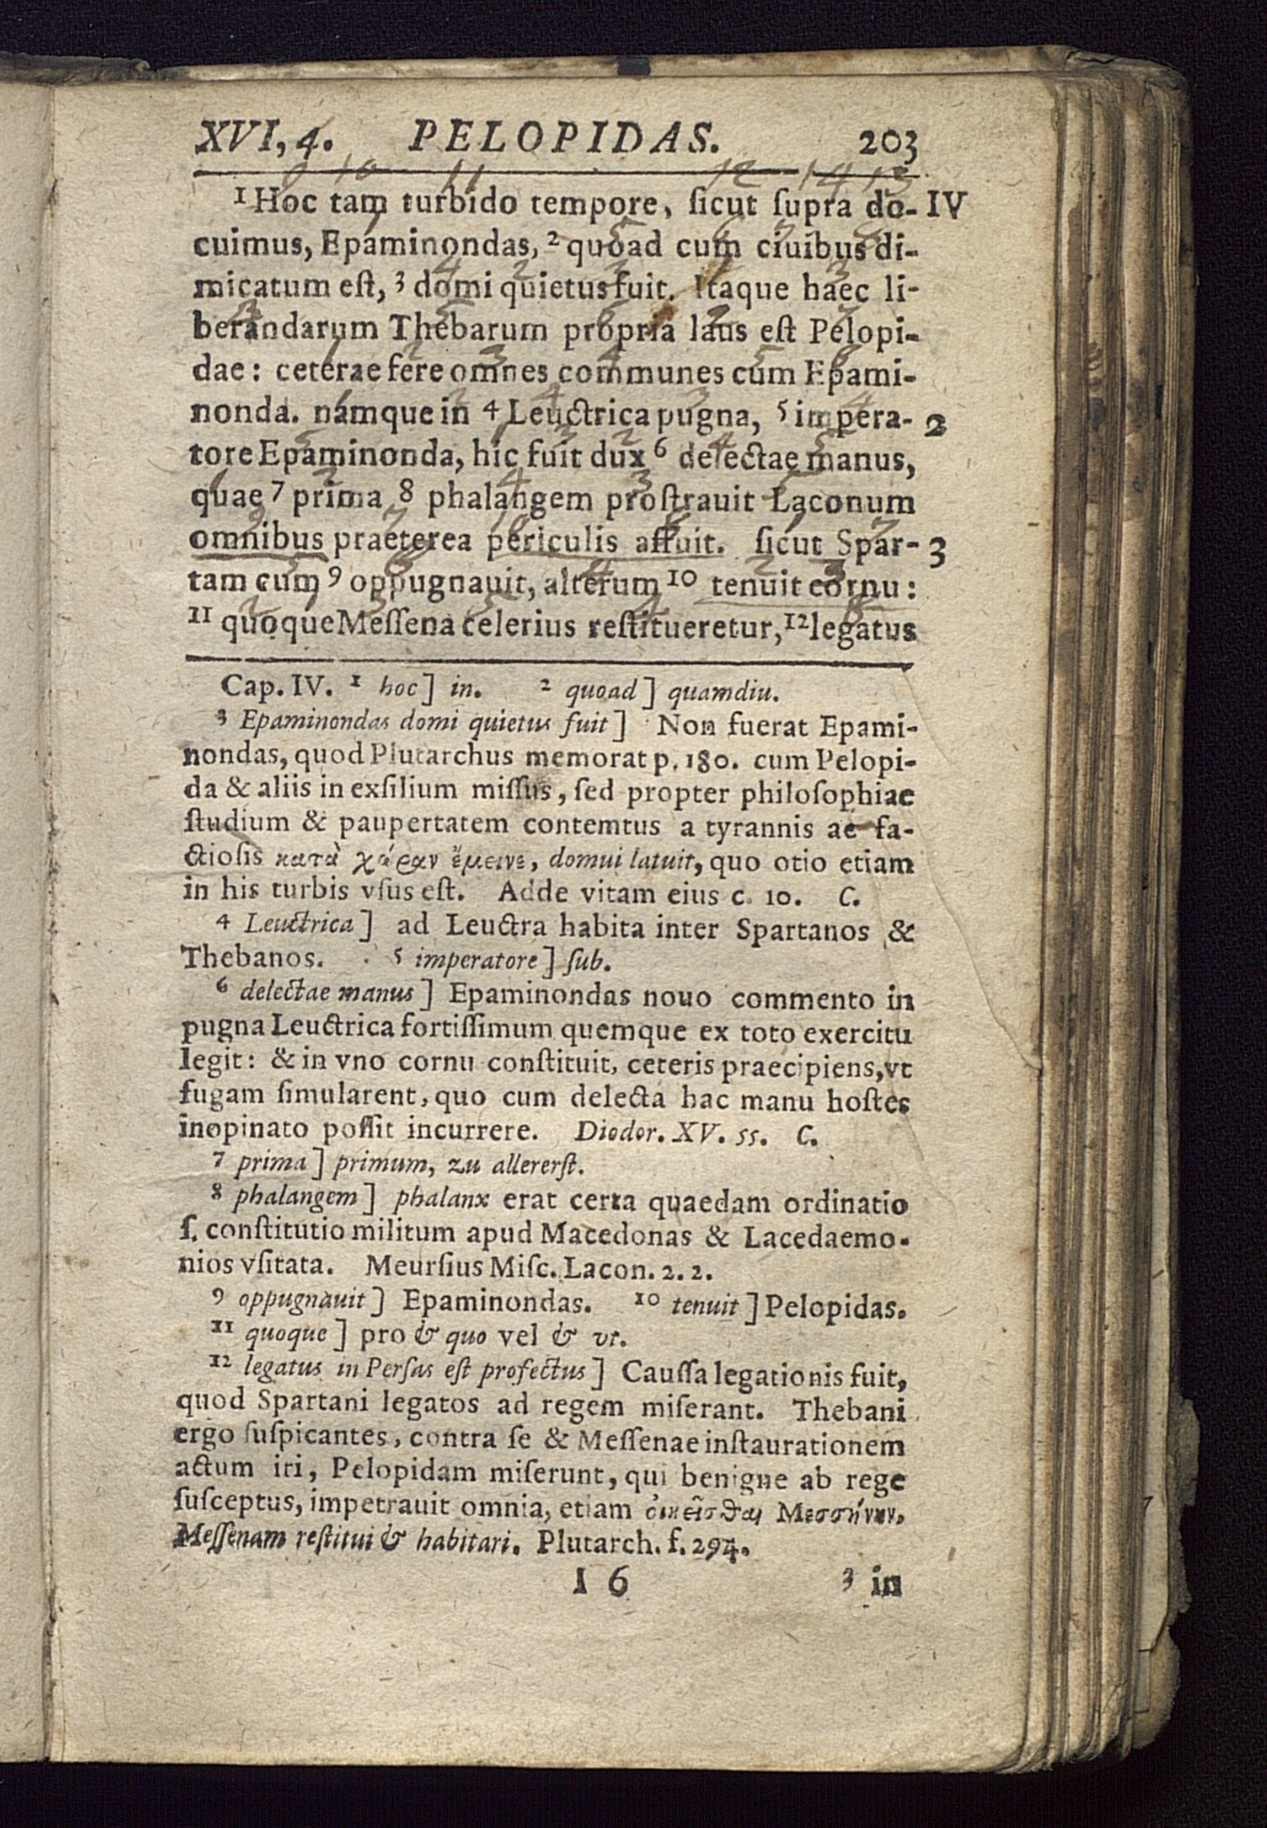 XVI, 4. PELOPIDAS. 203
1 Hoc tam turbido tempore, ſicut ſupra do- IV
cuimus, Epaminondas, 2 quoad cum ciuibus di-
micatum eſt, 3 domi quietus fuit. Itaque haec li-
berandarum Thebarum propria laus eſt Pelopi-
dae: ceterae fere omnes communes cum Epami-
nonda. namque in 4 Leuctrica pugna, 5 impera- 2
tore Epaminonda, hic fuit dux 6 delectae manus,
quae 7 prima 8 phalangem proſtrauit Laconum
omnibus praeterea periculis affuit. ſicut Spar- 3
tam cum 9 oppugnauit, alterum 10 tenuit cornu:
11 quoque Meſſena celerius reſtitueretur, 12 legatus
Cap. IV. 1 hoc] in. 2 quoad] quamdiu.
3 Epaminondas domi quietus fuit] Non fuerat Epami-
nondas, quod Plutarchus memorat p. 180. cum Pelopi-
da & aliis in exſilium miſſus, ſed propter philoſophiae
ſtudium & paupertatem contemtus a tyrannis ac fa-
ctioſis κατὰ χώραν ἔμεινε, domui latuit, quo otio etiam
in his turbis vſus eſt. Adde vitam eius c. 10. C.
4 Leuctrica] ad Leuctra habita inter Spartanos &
Thebanos. 5 imperatore] ſub.
6 delectae manus] Epaminondas nouo commento in
pugna Leuctrica fortiſſimum quemque ex toto exercitu
legit: & in vno cornu conſtituit, ceteris praecipiens, vt
fugam ſimularent, quo cum delecta hac manu hoſtes
inopinato poſſit incurrere. Diodor. XV. 55. C.
7 prima] primum, zu allererſt.
8 phalangem] phalanx erat certa quaedam ordinatio
ſ. conſtitutio militum apud Macedonas & Lacedaemo-
nios vſitata. Meurſius Miſc. Lacon. 2. 2.
9 oppugnauit] Epaminondas. 10 tenuit] Pelopidas.
11 quoque] pro & quo vel & vt.
12 legatus in Perſas eſt profectus] Cauſſa legationis fuit,
quod Spartani legatos ad regem miſerant. Thebani
ergo ſuſpicantes, contra ſe & Meſſenae inſtaurationem
actum iri, Pelopidam miſerunt, qui benigne ab rege
ſuſceptus, impetrauit omnia, etiam οἰκεῖσθαι Μεσσήνην,
Meſſenam reſtitui & habitari. Plutarch. f. 294.
I 6 3 in